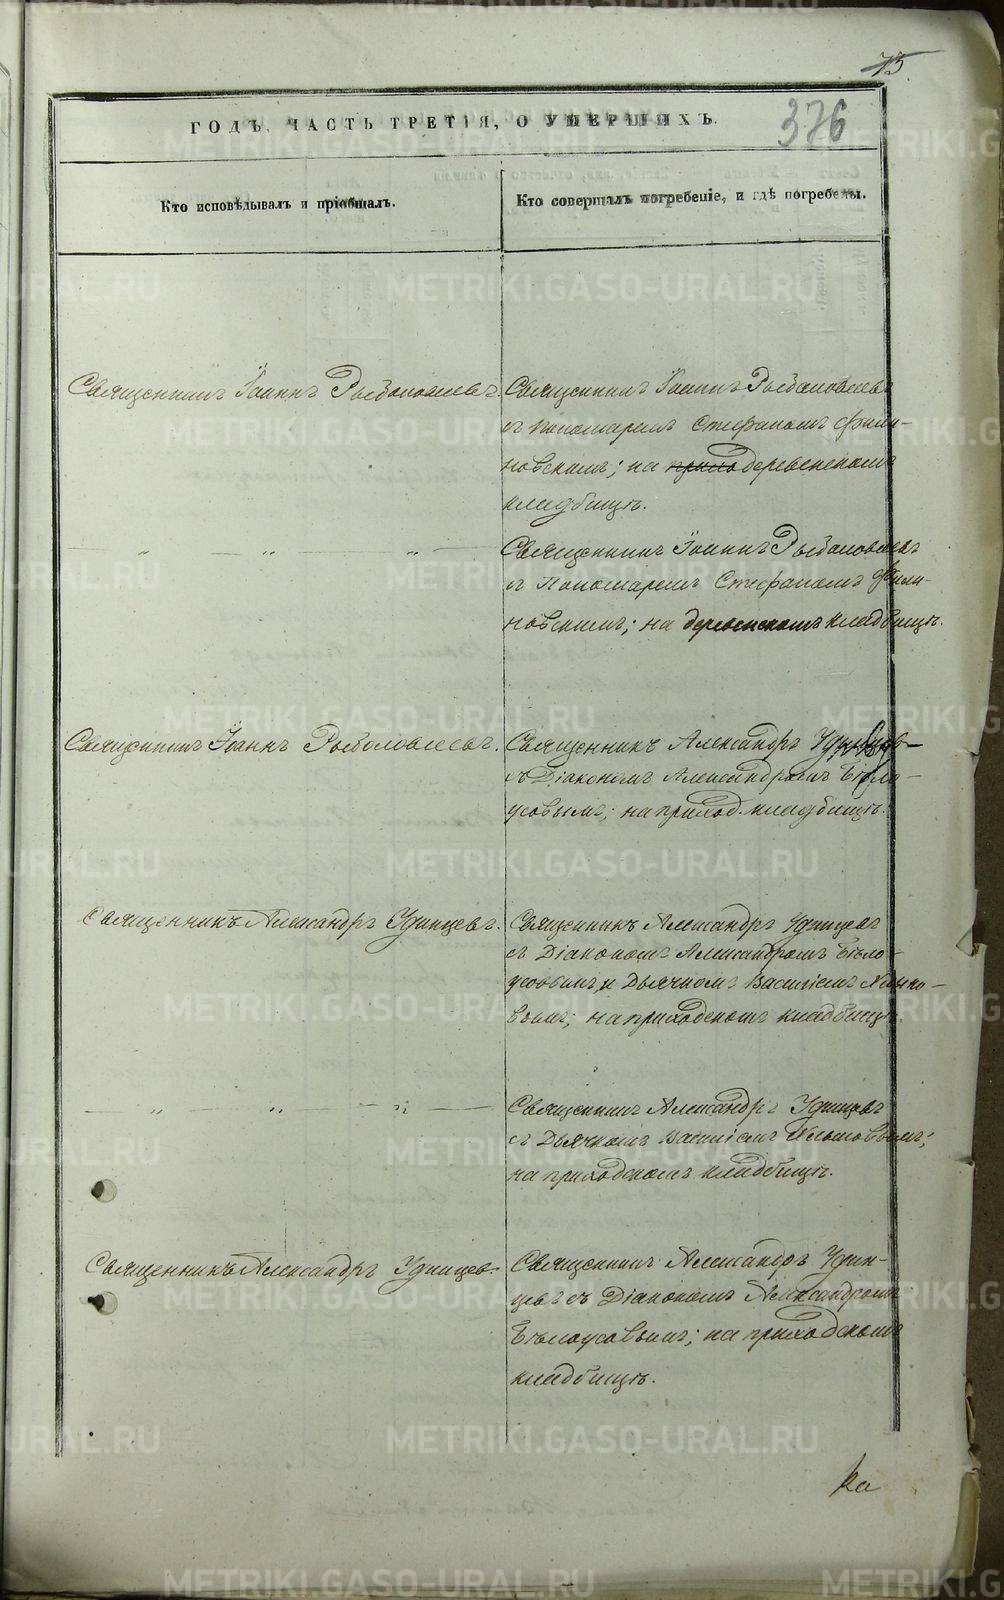 75.
376
ГОДЪ, ЧАСТЬ ТРЕТІЯ, О УМЕРШИХЪ.
Кто исповѣдывалъ и пріобщалъ.
Кто совершалъ погребеніе, и гдѣ погребены.
Священникъ Іоаннъ Рыболовлевъ.
Священникъ Іоаннъ Рыболовлевъ
съ Пономаремъ Стефаномъ Фили-
новскимъ; на деревенскомъ
кладбищѣ.
— „ „ „ —
Священникъ Іоаннъ Рыболовлевъ
съ Пономаремъ Стефаномъ Фили-
новскимъ; на деревенскомъ кладбищѣ.
Священникъ Іоаннъ Рыболовлевъ.
Священникъ Александръ Удинцовъ
съ Діакономъ Александромъ Бѣло-
усовымъ; на приход. кладбищѣ.
Священникъ Александръ Удинцевъ.
Священникъ Александръ Удинцевъ
съ Діакономъ Александромъ Бѣло-
усовымъ и Дьячкомъ Василіемъ
вымъ; на приходскомъ кладбищѣ.
— „ „ „ —
Священникъ Александръ Удинцевъ
съ Дьячкомъ Василіемъ
на приходскомъ кладбищѣ.
Священникъ Александръ Удинцев.
Священникъ Александръ Удин-
цевъ съ Діакономъ Александромъ
Бѣлоусовымъ; на приходскомъ
кладбищѣ.
ка
METRIKI.GASO-URAL.RU